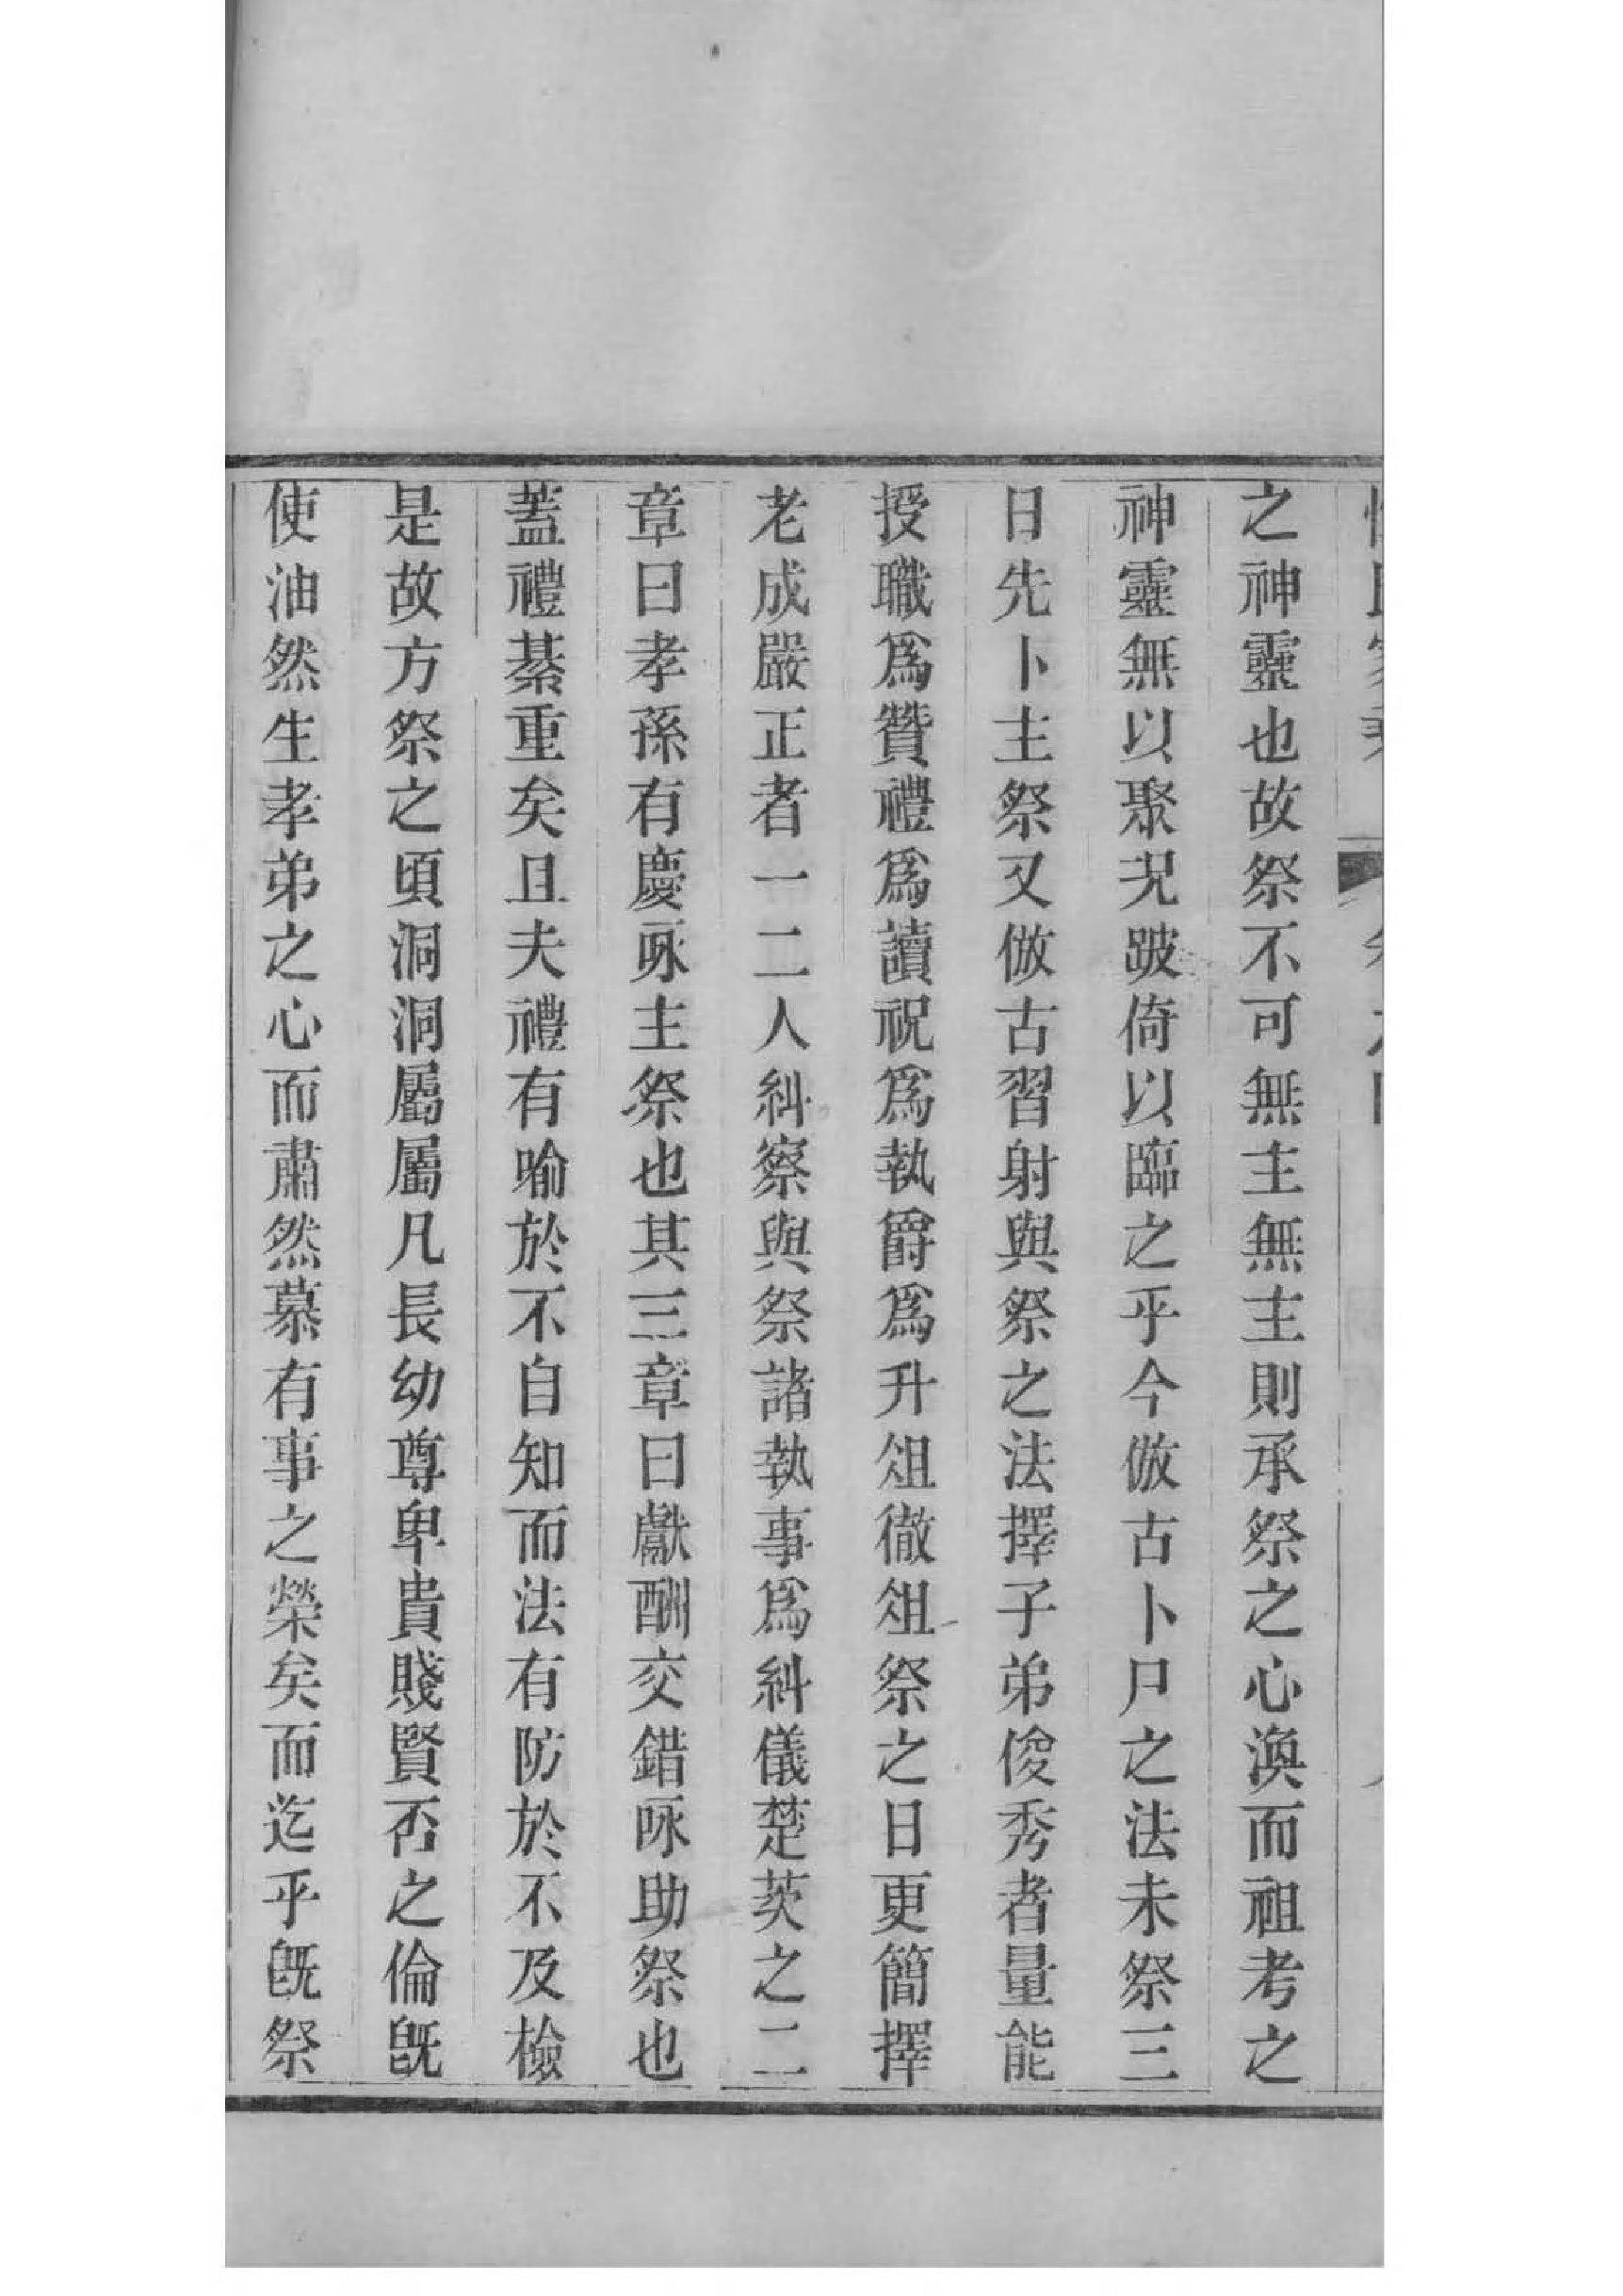 之神靈也故祭不可無主無主則承祭之心渙而祖考之
神靈無以聚况跛倚以臨之乎今倣古卜尸之法未祭三
日先卜主祭又倣古習射與祭之法擇子弟俊秀者量能
授職爲贊禮爲讀祝爲執爵爲升俎徹俎祭之日更簡擇
老成嚴正者一二人糾察與祭諸執事爲糾儀楚茨之二
章曰孝孫有慶咏主祭也其三章曰獻酬交錯咏助祭也
蓋禮綦重矣且夫禮有喻於不自知而法有防於不及檢
是故方祭之頃洞洞屬屬凡長幼尊卑貴賤賢否之倫旣
使油然生孝弟之心而肅然慕有事之榮矣而迄乎旣祭